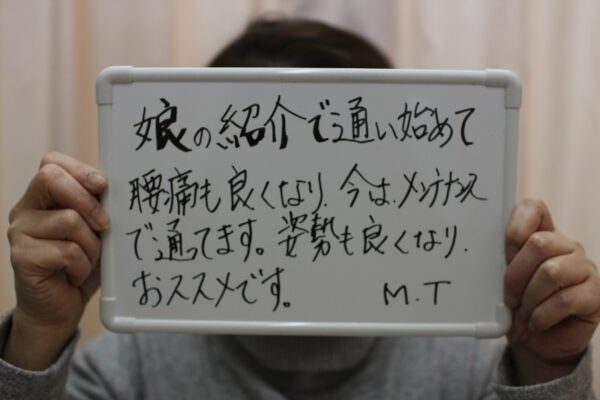 娘の紹介で通い始めて
腰痛も良くなり、今は、メンテナンス
で通ってます。姿勢も良くなり、
おススメです。 M.T